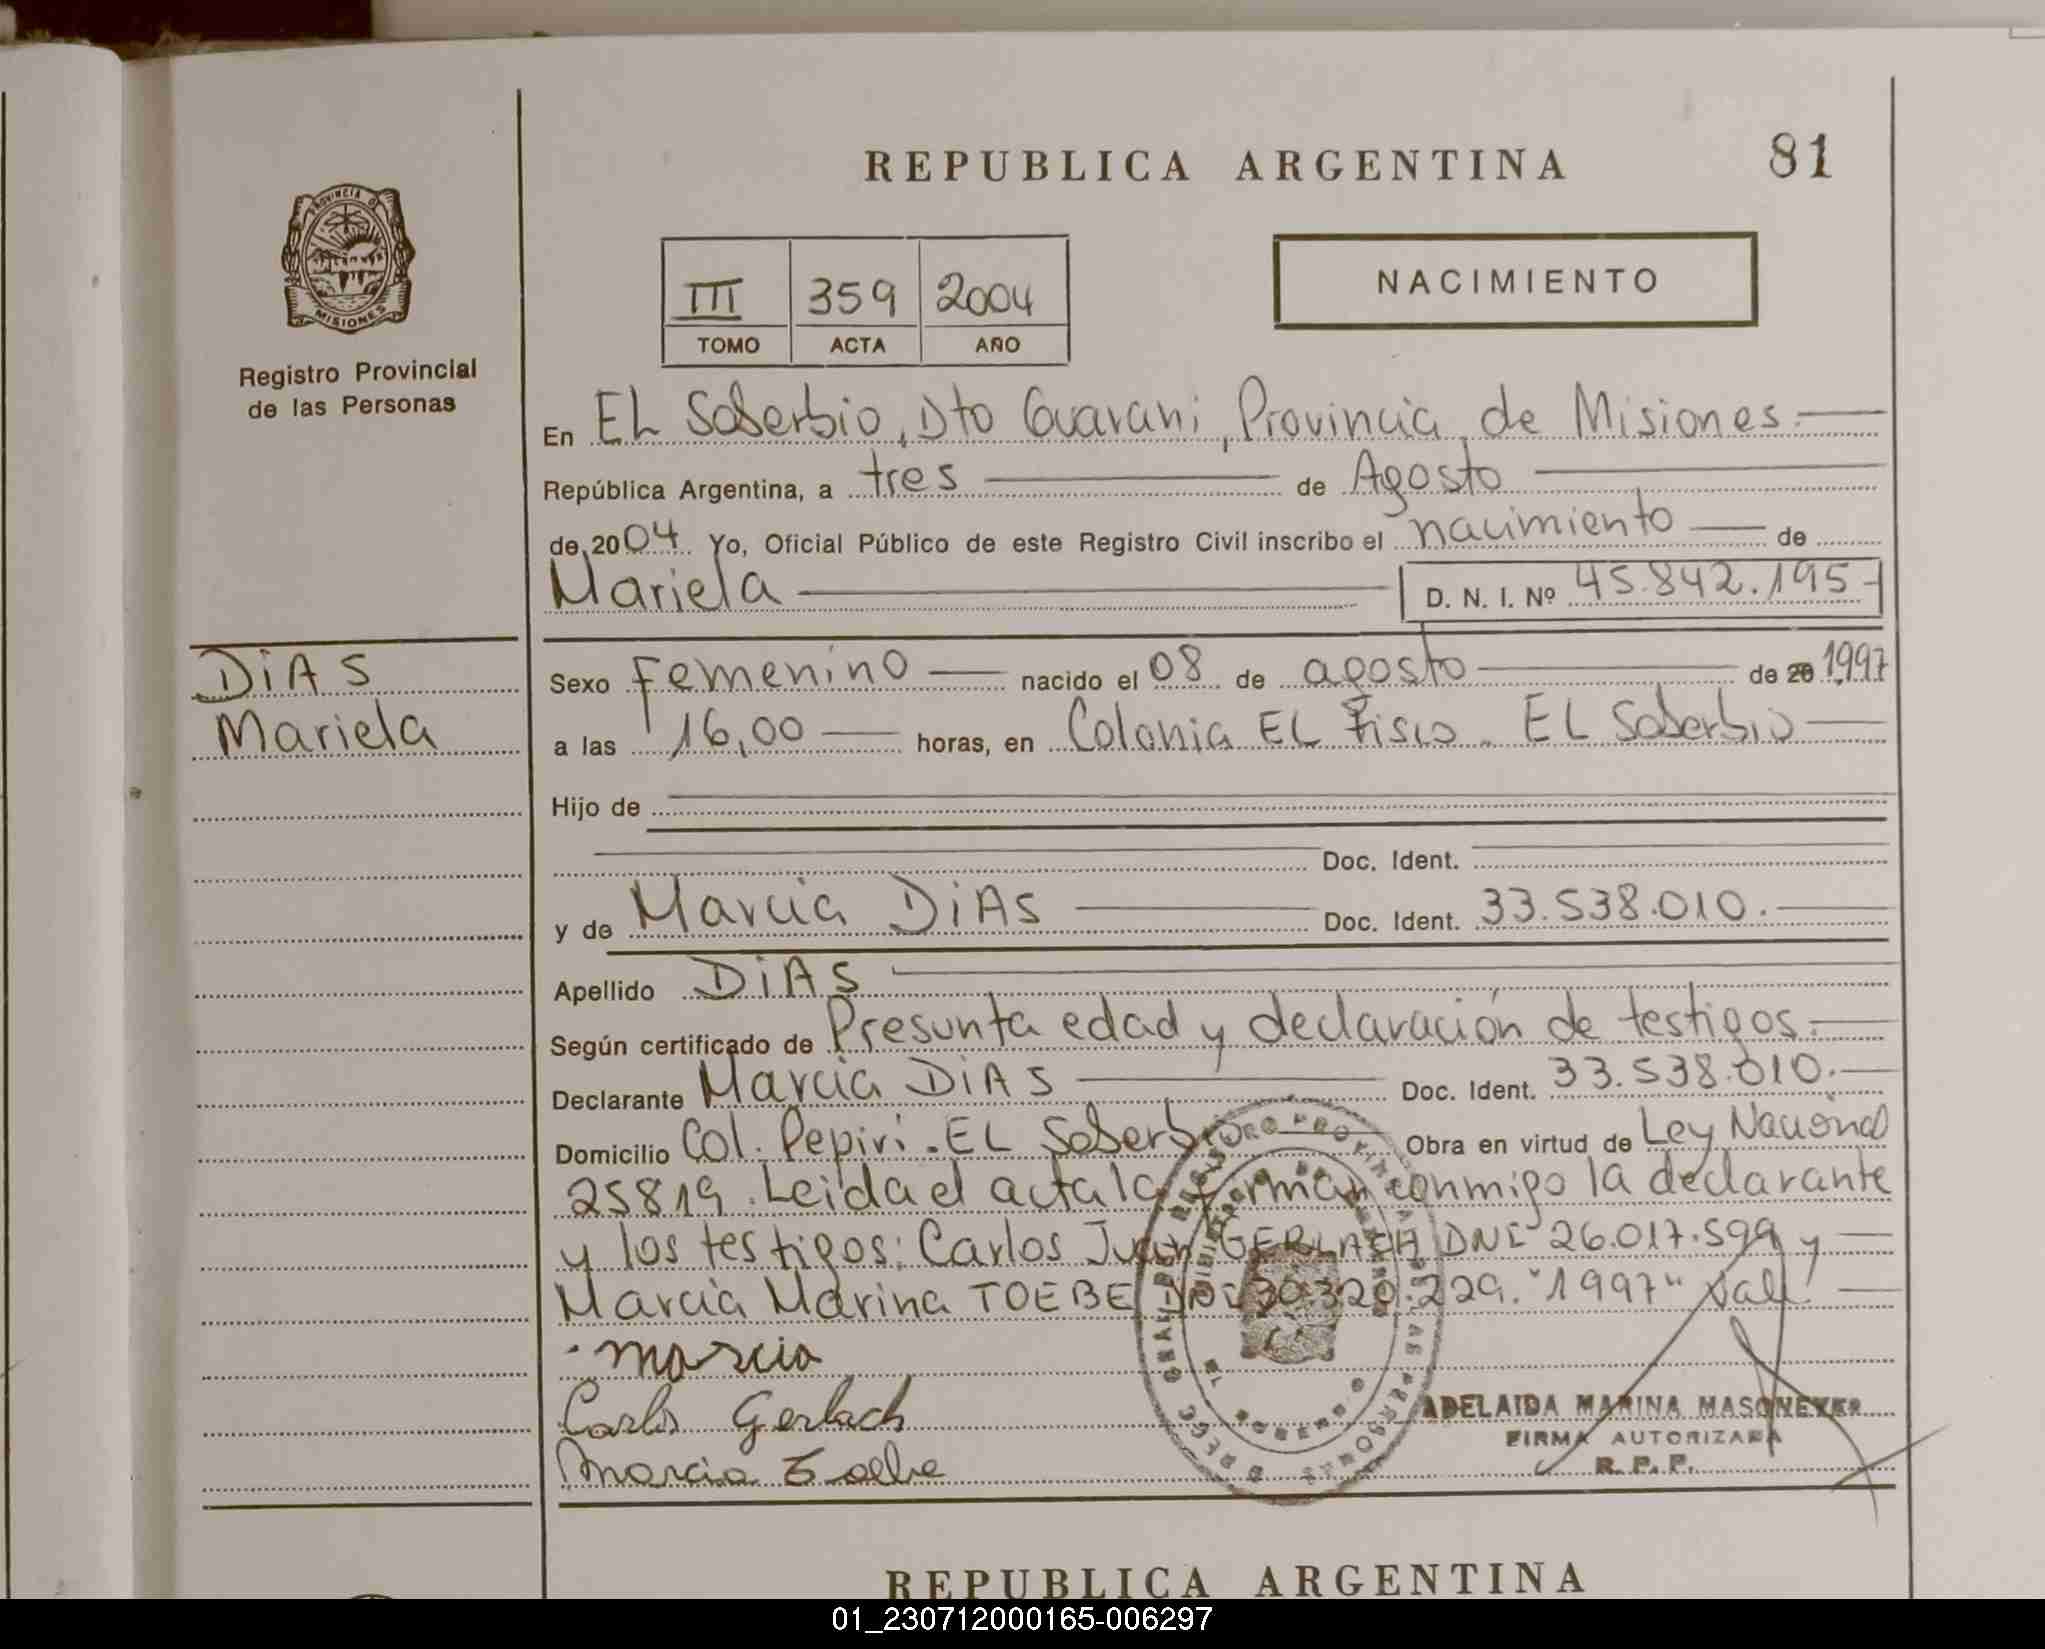 REPUBLICA ARGENTINA
81
PROVINCIA D
MISIONES
Registro Provincial
de las Personas
NACIMIENTO
III 359 2004
TOMO ACTA AÑO
En EL Soberbio, Dto Guarani, Provincia de Misiones.
República Argentina, a tres de Agosto
de 2004 Yo, Oficial Público de este Registro Civil inscribo el nacimiento de
Mariela D. N. I. Nº 45.842.195
DiAS
Mariela
Sexo Femenino nacido el 08 de agosto de 20 1997
a las 16,00 horas, en Colonia EL Fisco. EL Soberbio
Hijo de
Doc. Ident.
y de Marcia DiAS Doc. Ident. 33.538.010.
Apellido DiAS
Según certificado de Presunta edad y declaración de testigos.
Declarante Marcia DiAS Doc. Ident. 33.538.010.
Domicilio Col. Pepiri. EL Soberbio Obra en virtud de Ley Nacional
25819. Leida el acta la firman conmigo la declarante
y los testigos: Carlos Juan GERLACH DNI 26.017.599 y
Marcia Marina TOEBE DNI 30.320.229. "1997" Vale
marcia
Carlos Gerlach
Marcia Toebe
ADELAIDA MARINA MASONEYER
FIRMA AUTORIZADA
R. P. P.
REPUBLICA ARGENTINA
01_230712000165-006297